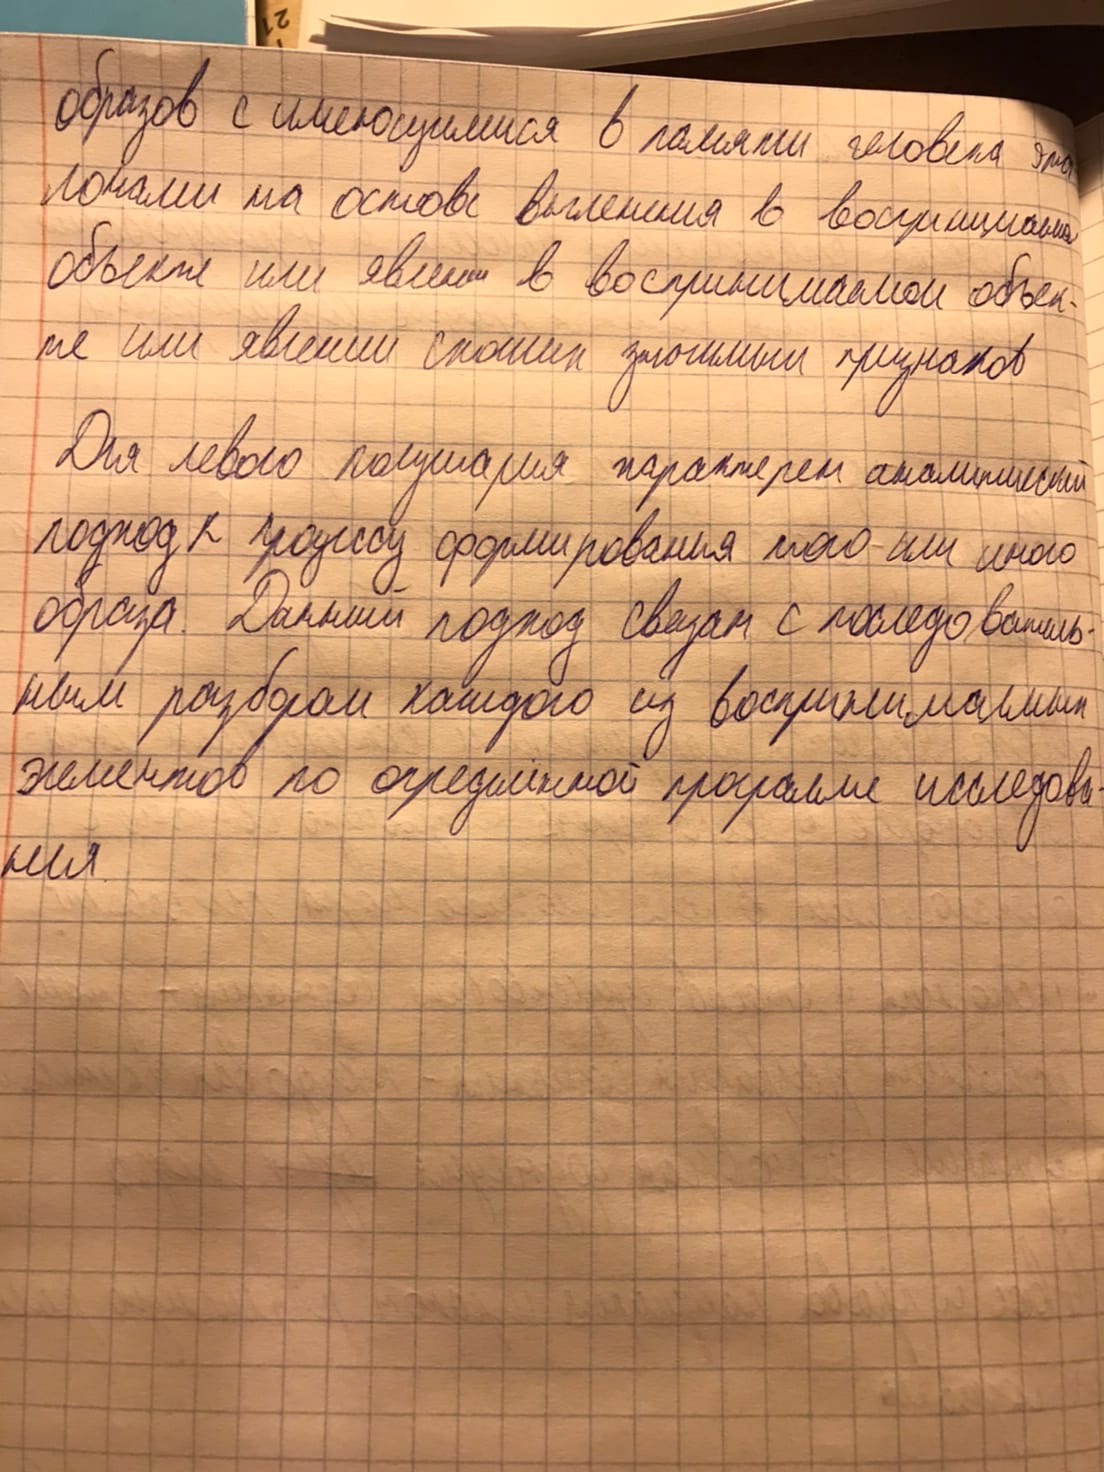 образов с имеющимися в памяти человека эта
лонами на основе вычленения в воспринимаемом
объекте или явлении в воспринимаемом объек-
те или явлении значимых признаков
Для левого полушария характерен аналитический
подход к процессу формирования того или иного
образа. Данный подход связан с последователь-
ным разбором каждого из воспринимаемых
элементов по определённой программе исследова-
ния
21